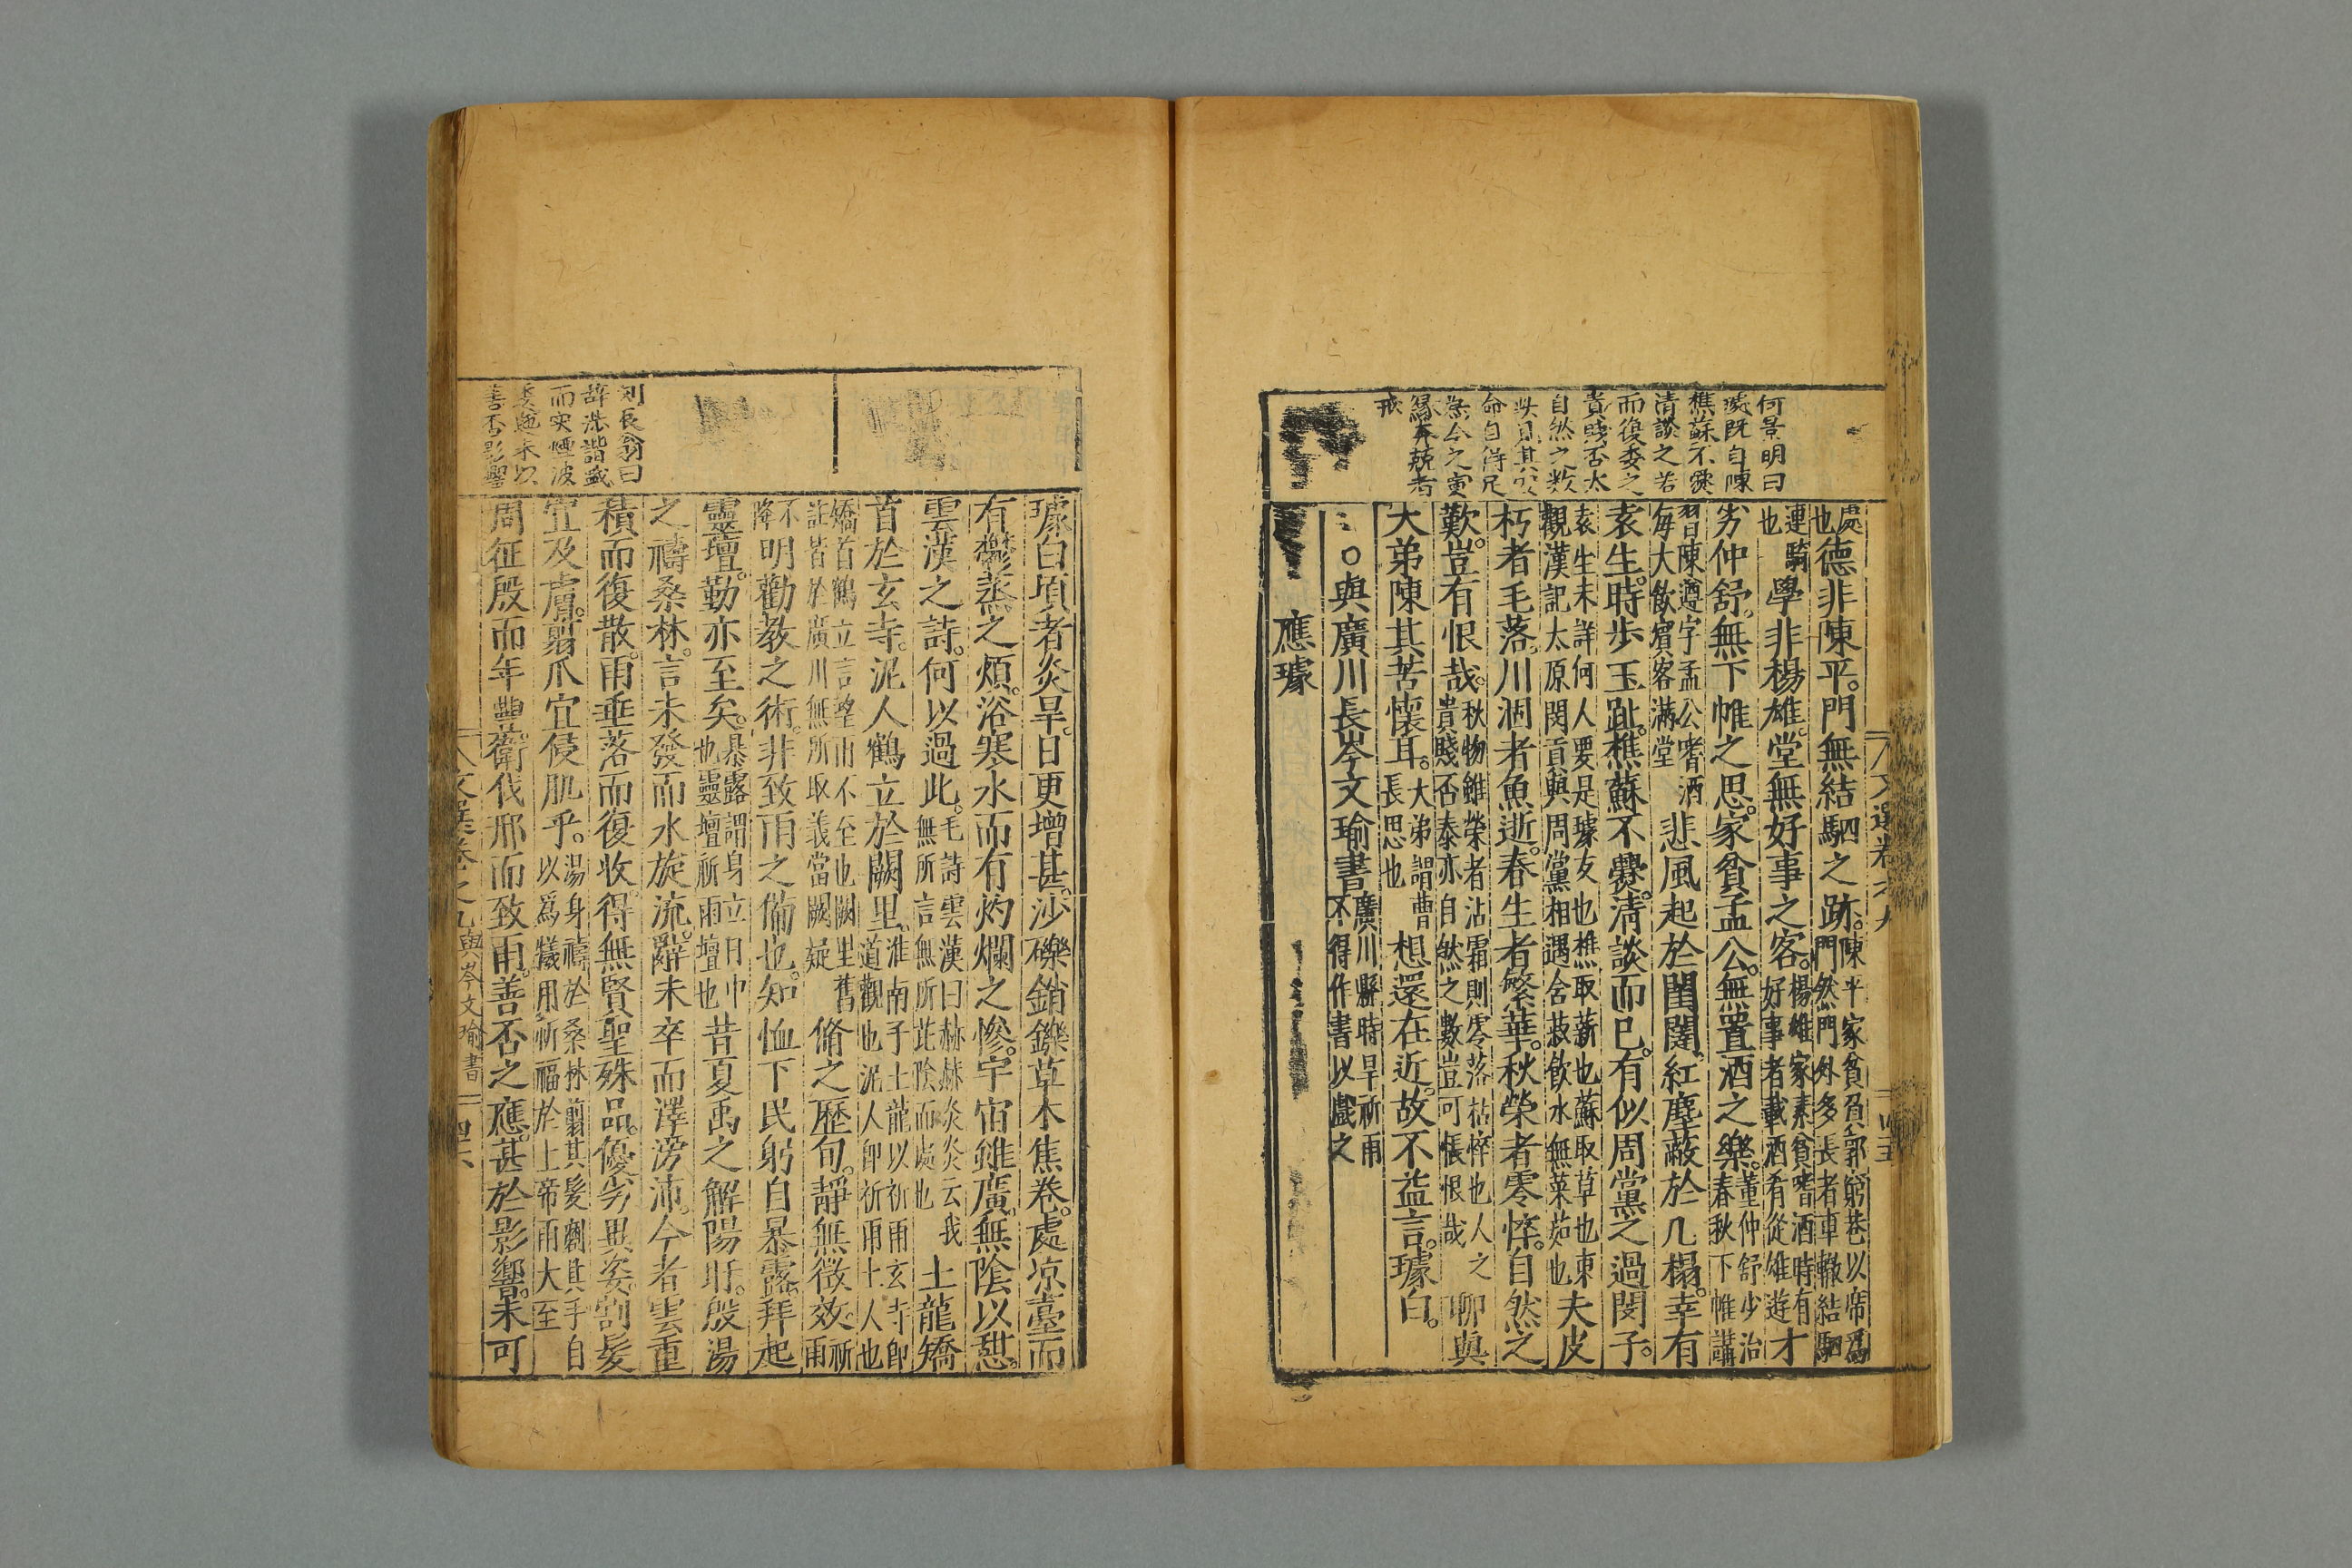 何景明曰
感既自陳
樵蘇不爨
清談之若
而後委之
貴賤否太
自然之数
命自得足
緣奔競者
戒
處
也德非陳平。門無結駟之跡。陳平家貧負郭窮巷以席爲
門然門外多長者車轍結駟
連騎
也學非楊雄。堂無好事之客。楊雄家素貧嗜酒時有
好事者載酒肴從雄遊才
劣仲舒。無下帷之思。家貧孟公。無置酒之樂。董仲舒少治
春秋下帷講
習曰陳遵字孟公嗜酒
每大飲賓客滿堂悲風起於閨闥。紅塵蔽於几榻。幸有
袁生。時步玉趾。樵蘇不爨。清談而已。有似周黨之過閔子。
袁生未詳何人要是璩友也樵取薪也蘇取草也東
觀漢記太原閔貢與周黨相遇含菽飲水無菜茹也夫皮
朽者毛落。川涸者魚逝。春生者繁華。秋榮者零悴。自然之
歎。豈有恨哉。秋物雖榮者沾霜則零落枯悴也人之
貴賤否泰亦自然之數豈可悵恨哉聊與
大弟陳其苦懷耳。大弟謂曹
長思也想還在近。故不益言。璩白。
○與廣川長岑文瑜書廣川縣時旱祈雨
不得作書以戲之
應璩
文選卷之九
四五
劉長翁曰
辭洗諧盛
而実煙波
善否影響
璩白頃者炎旱。日更增甚。沙礫銷鑠。草木焦卷。處凉臺而
有鬱蒸之煩。浴寒水而有灼爛之慘。宇宙雖廣。無陰以憇。
雲漢之詩。何以過此。毛詩雲漢曰赫赫炎炎云我
無所言無所芘陰而處也土龍矯
首於玄寺。泥人鶴立於闕里。淮南子土龍以祈雨玄寺即
道觀也泥人即祈雨土人也
矯首鶴立言望雨不至也闕里舊
註皆於廣川無所取義當闕疑脩之歷旬。靜無徵效。祈
雨
不
降明勸教之術。非致雨之備也。知恤下民。躬自暴露。拜起
靈壇。勤亦至矣。暴露謂身立日中
也靈壇祈雨壇也昔夏禹之解陽旴。殷湯
之禱桑林。言未發而水旋流。辭未卒而澤滂沛。今者雲重
積而復散。雨垂落而復收。得無賢聖殊品。優劣異姿。割髮
宜及膚。翦爪宜侵肌乎。湯身禱於桑林翦其髮劘其手自
以爲犧用祈福於上帝雨大至
周征殷而年豐。衛伐邢而致雨。善否之應。甚於影響。未可
文選卷之九
與岑文瑜書
四六